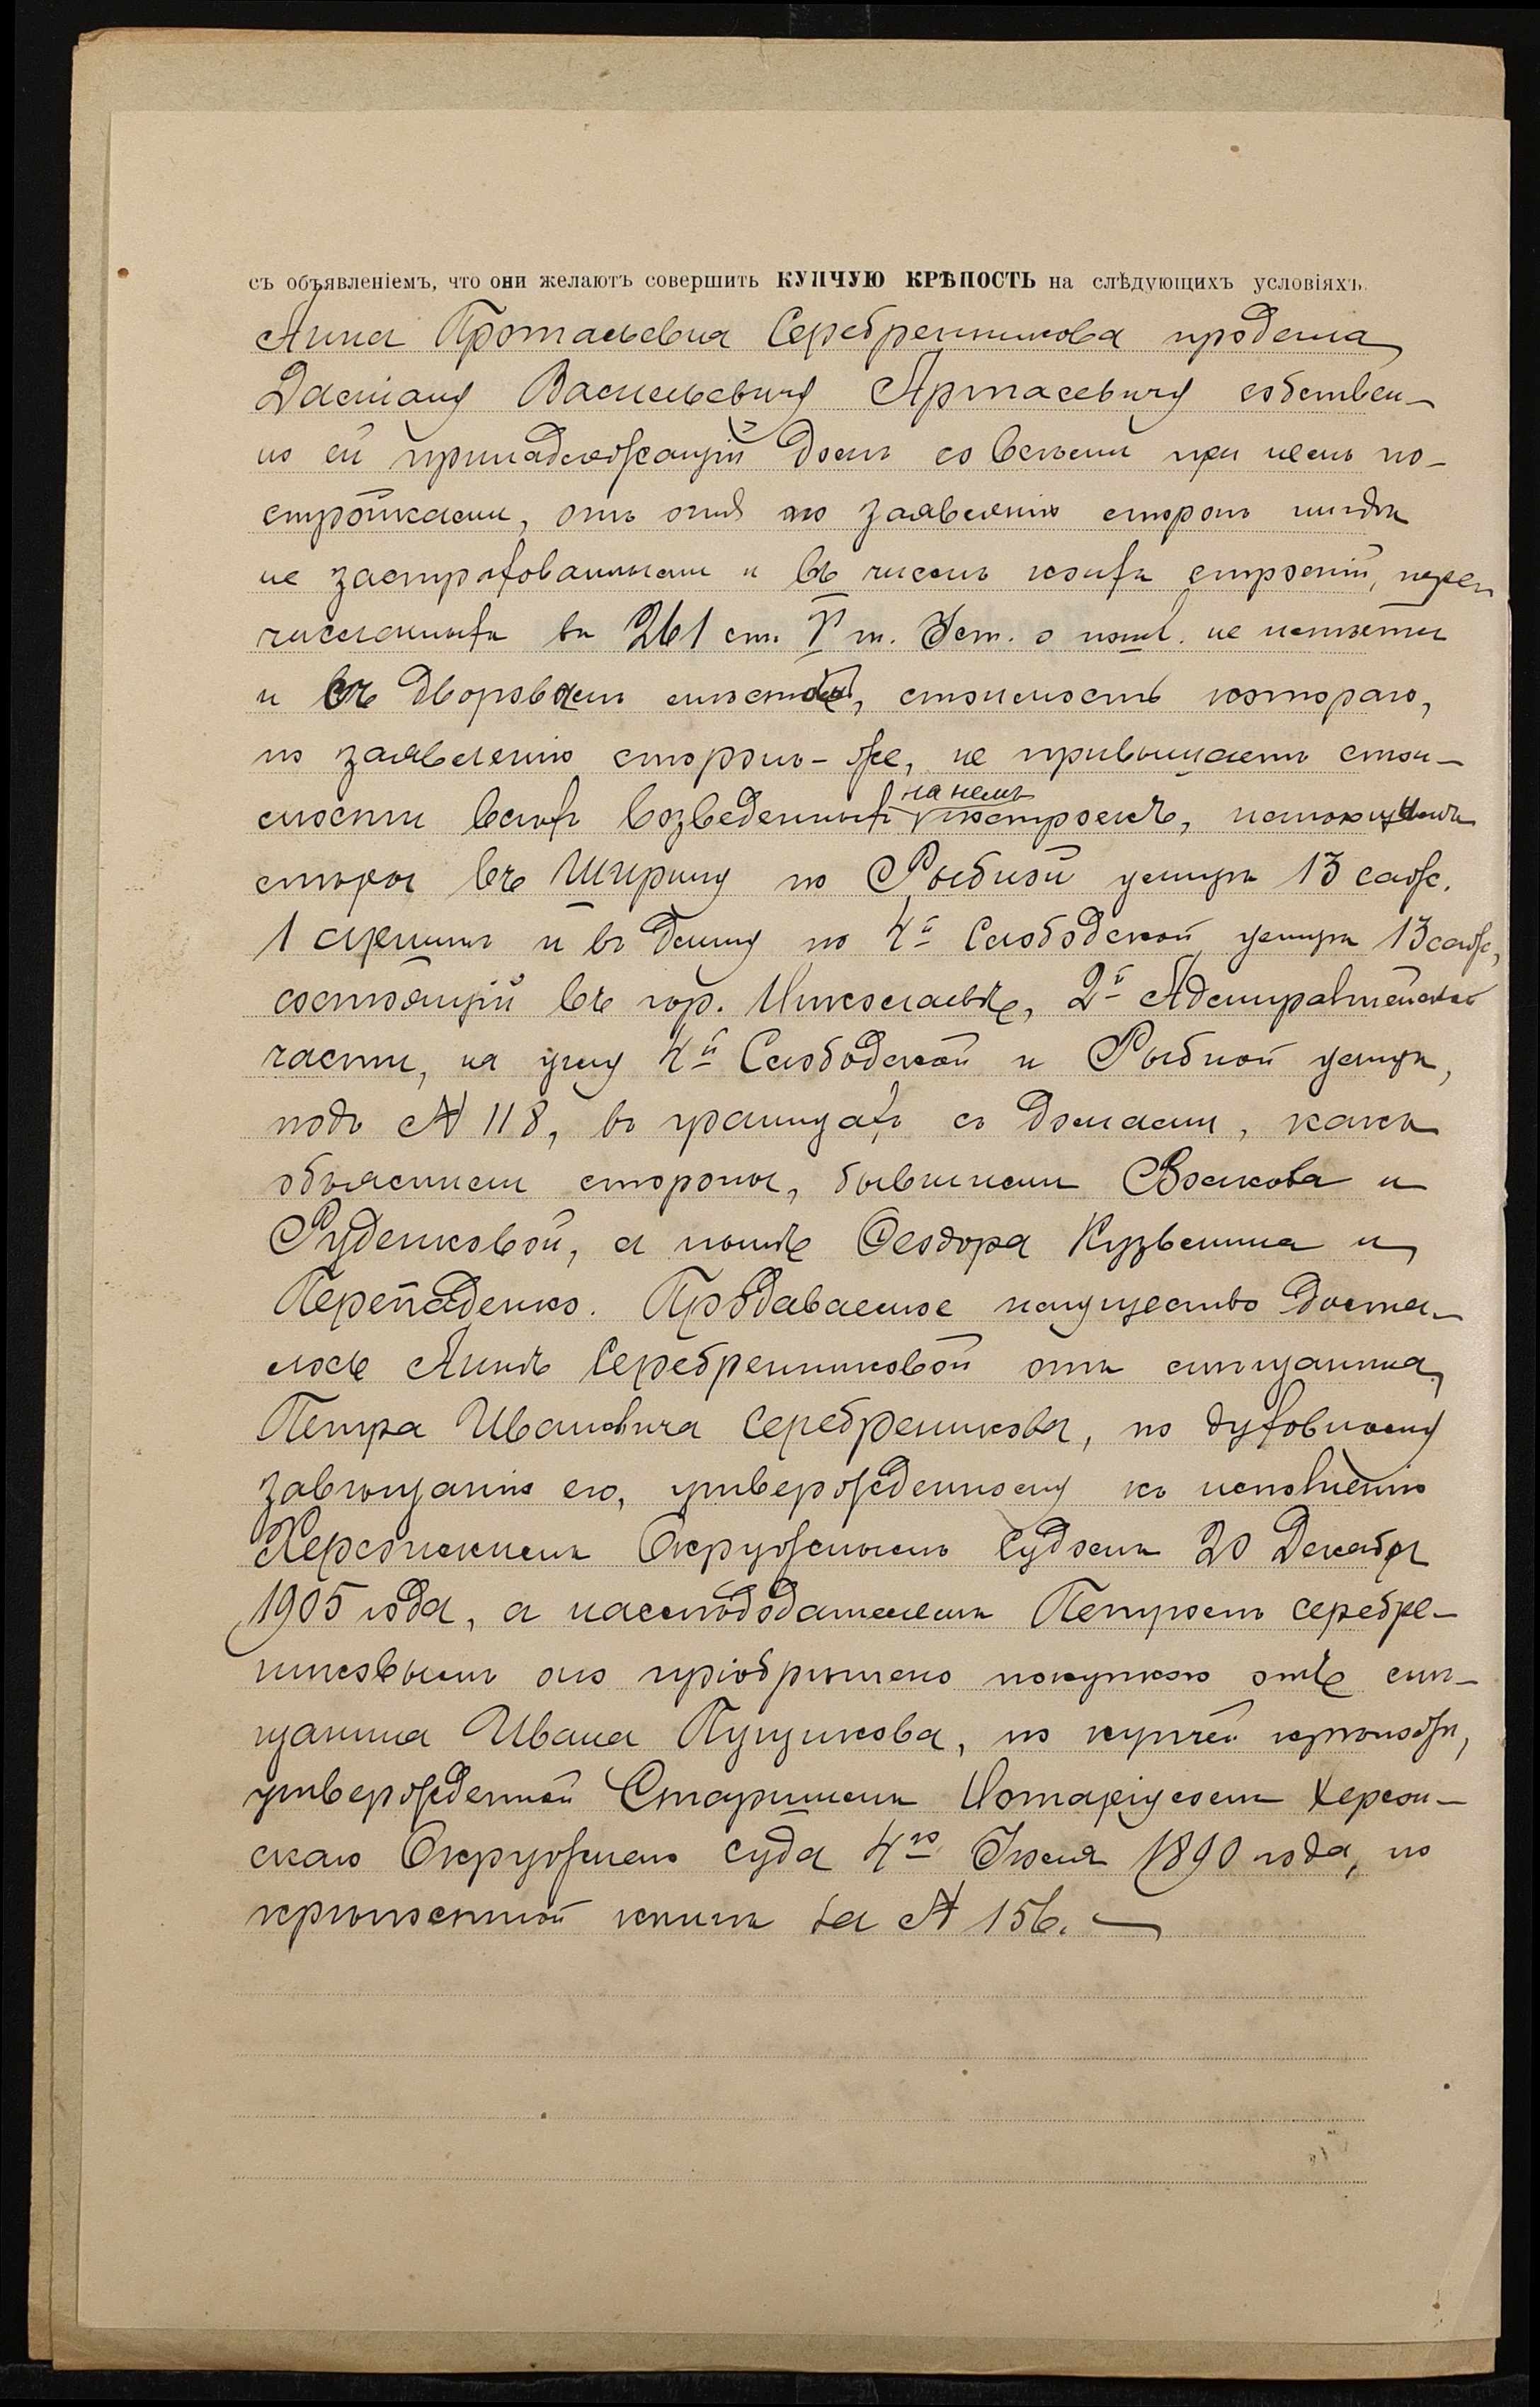 съ объявленіемъ, что они желаютъ совершить КУПЧУЮ КРѢПОСТЬ на слѣдующихъ условіяхъ.
Анна Протасьевна Серебренникова продала
Даміану Васильевичу Артасевичу собствен-
но ей принадлежащій домъ со всѣми при немъ по-
стройками, отъ огня по заявленію сторонъ нигдѣ
не застрахованными и въ числѣ коихъ строеній, пере-
численныхъ въ 261 ст. V т. Уст. о пошл. не имѣется
и съ дворовымъ мѣстомъ, стоимость котораго,
по заявленію сторонъ-же, не привышаетъ стои-
мости всѣхъ возведенныхъ на немъ построекъ, имѣющимъ
мѣрою въ ширину по Рыбной улицѣ 13 саж.
1 аршинъ и въ длину по 4й Слободской улицѣ 13 саж.,
состоящій въ гор. Николаевѣ, 2й Адмиралтейской
части, на углу 4й Слободской и Рыбной улицъ,
подъ № 118, въ границахъ съ домами, какъ
объяснили стороны, бывшими Волкова и
Руденковой, а нынѣ Ѳеодора Кузьмина и
Перепаденко. Продаваемое имущество доста-
лось Аннѣ Серебренниковой отъ мѣщанина
Петра Ивановича Серебреникова, по духовному
завѣщанію его, утвержденному къ исполненію
Херсонскимъ Окружнымъ Судомъ 20 Декабря
1905 года, а наслѣдодателемъ Петромъ Серебре-
никовымъ оно пріобрѣтено покупкою отъ мѣ-
щанина Ивана Пущикова, по купчей крѣпости,
утвержденной Старшимъ Нотаріусомъ Херсон-
скаго Окружнаго Суда 4го Іюля 1890 года, по
крѣпостной книгѣ за № 156.